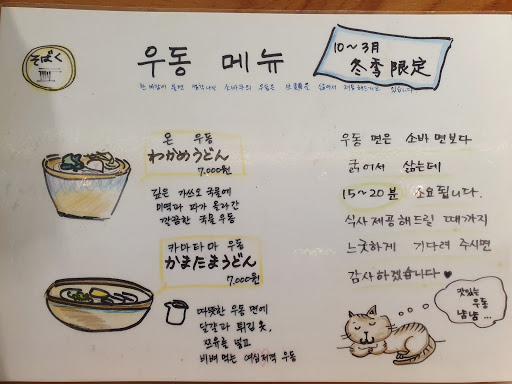 そばく
우동 메뉴
10~3月
冬季限定
온 우동
わかめうどん
7,000원
깊은 가쓰오 국물에
미역과 파가 올라간
깔끔한 국물 우동
카마타마 우동
かまたまうどん
7,000원
따뜻한 우동 면에
달걀과 튀김 옷,
쯔유를 넣고
비벼 먹는 여심저격 우동
우동 면은 소바면보다
굵어서 삶는데
15~20분 소요됩니다.
식사 제공해드릴 때까지
느긋하게 기다려 주시면
감사하겠습니다♥
맛있는
우동
냠냠...